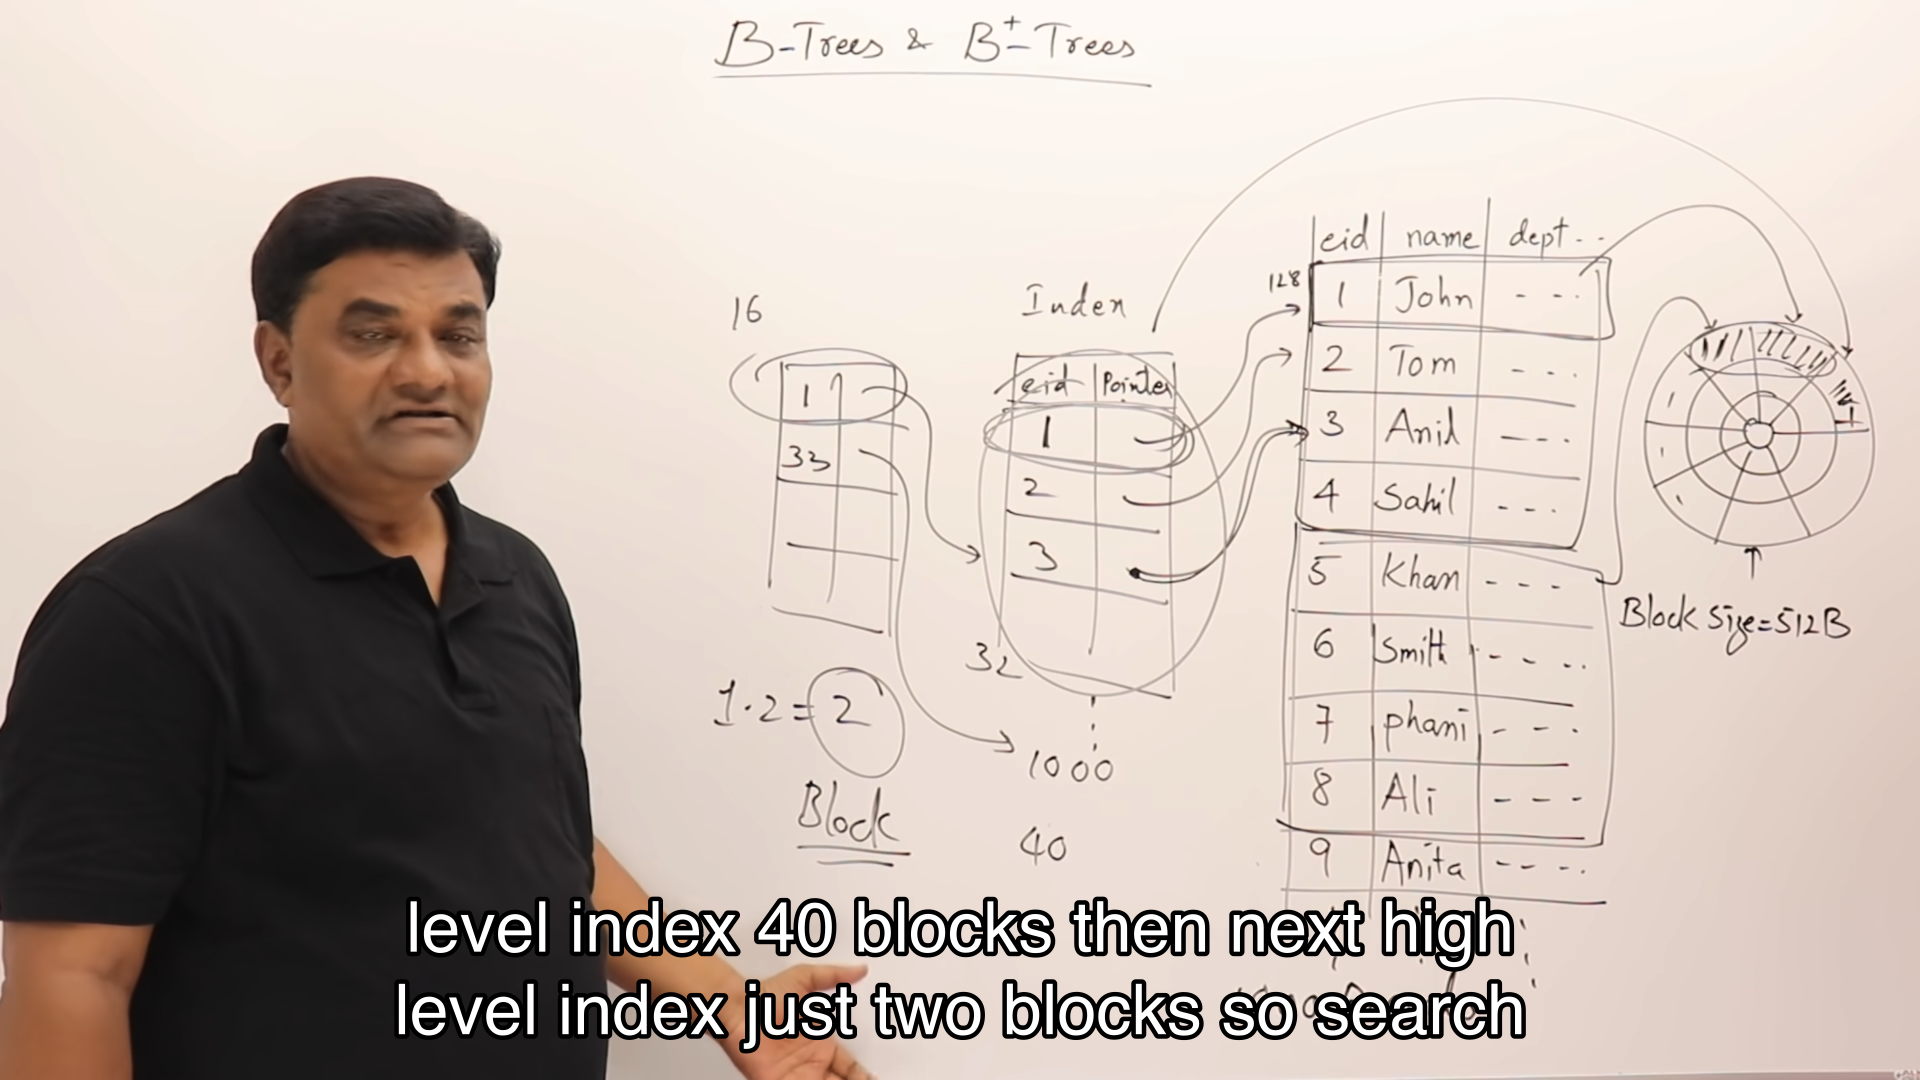 B-Trees & B+-Trees
16
1
33
1.2=2
Block
Index
eid Pointer
1
2
3
32
1000
40
128
eid name dept..
1 John ---
2 Tom ---
3 Anil ---
4 Sahil ---
5 Khan ---
6 Smith ---
7 phani ---
8 Ali ---
9 Anita ---
Block Size=512B
level index 40 blocks then next high
level index just two blocks so search